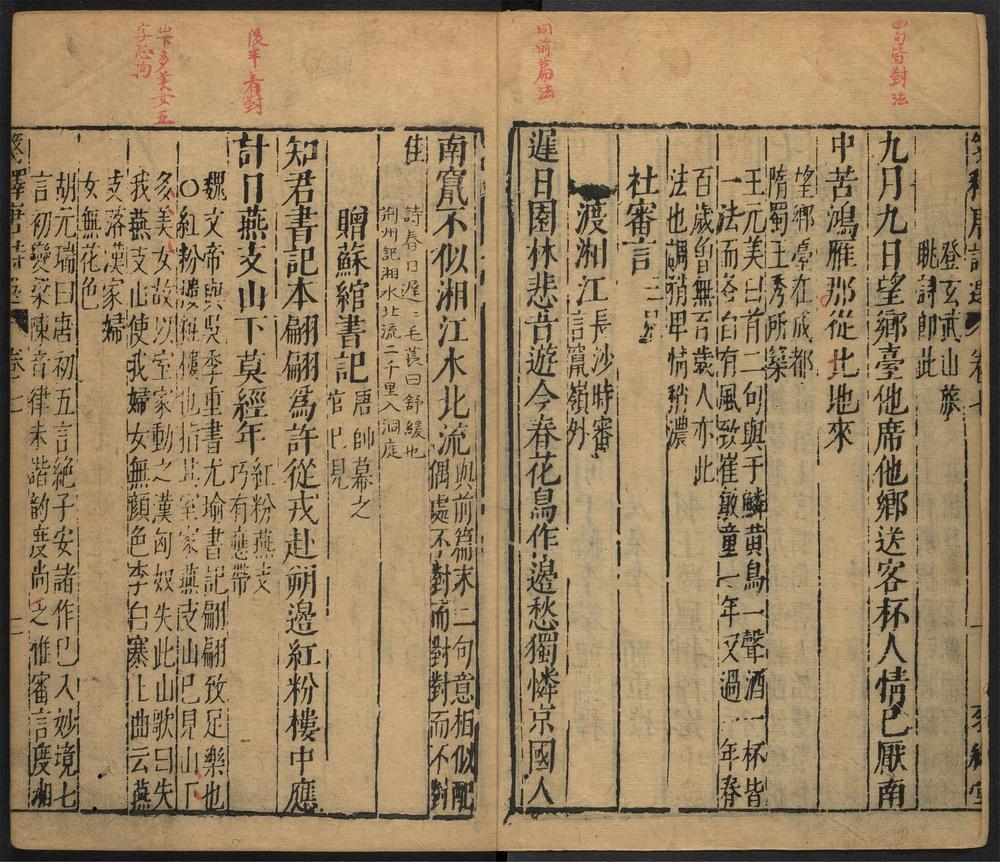 四句皆對法
登玄武山旅
眺詩卽此
九月九日望鄉臺他席他鄉送客杯人情已厭南
中苦鴻雁那從北地來
望鄉臺在成都
隋蜀王秀所築
王元美曰首二句與于鱗黃鳥一聲酒一杯皆
一法而各自有風致崔敏童一年又過一年春
百歲曾無百歲人亦此
法也調稍卑情稍濃
社審言
渡湘江
長沙時審
言竄嶺外
遲日園林悲昔遊今春花鳥作邊愁獨憐京國人
同前篇法
南竄不似湘江水北流
與前篇末二句意相似配
偶處不對而對對而不對
佳
詩春日遲遲毛萇曰舒緩也
荊州記湘水北流二千里入洞庭
贈蘇綰書記
唐帥幕之
官已見
知君書記本翩翩爲許從戎赴朔邊紅粉樓中應
計日燕支山下莫經年
紅粉燕支
巧有應帶
後半着對
魏文帝與吳季重書尤瑜書記翩翩致足樂也
〇紅粉樓也指其室家燕支山已見山下
多美女故以室家動之漢匈奴失此山歌曰失
我燕支山使我婦女無顏色李白塞上曲云燕
支落漢家婦
女無花色
山下多美女五
字恐拘
胡元瑞曰唐初五言絕子安諸作已入妙境七
言初變梁陳音律未諧韵度尚乏惟審言度湘
箋釋唐詩選
卷七